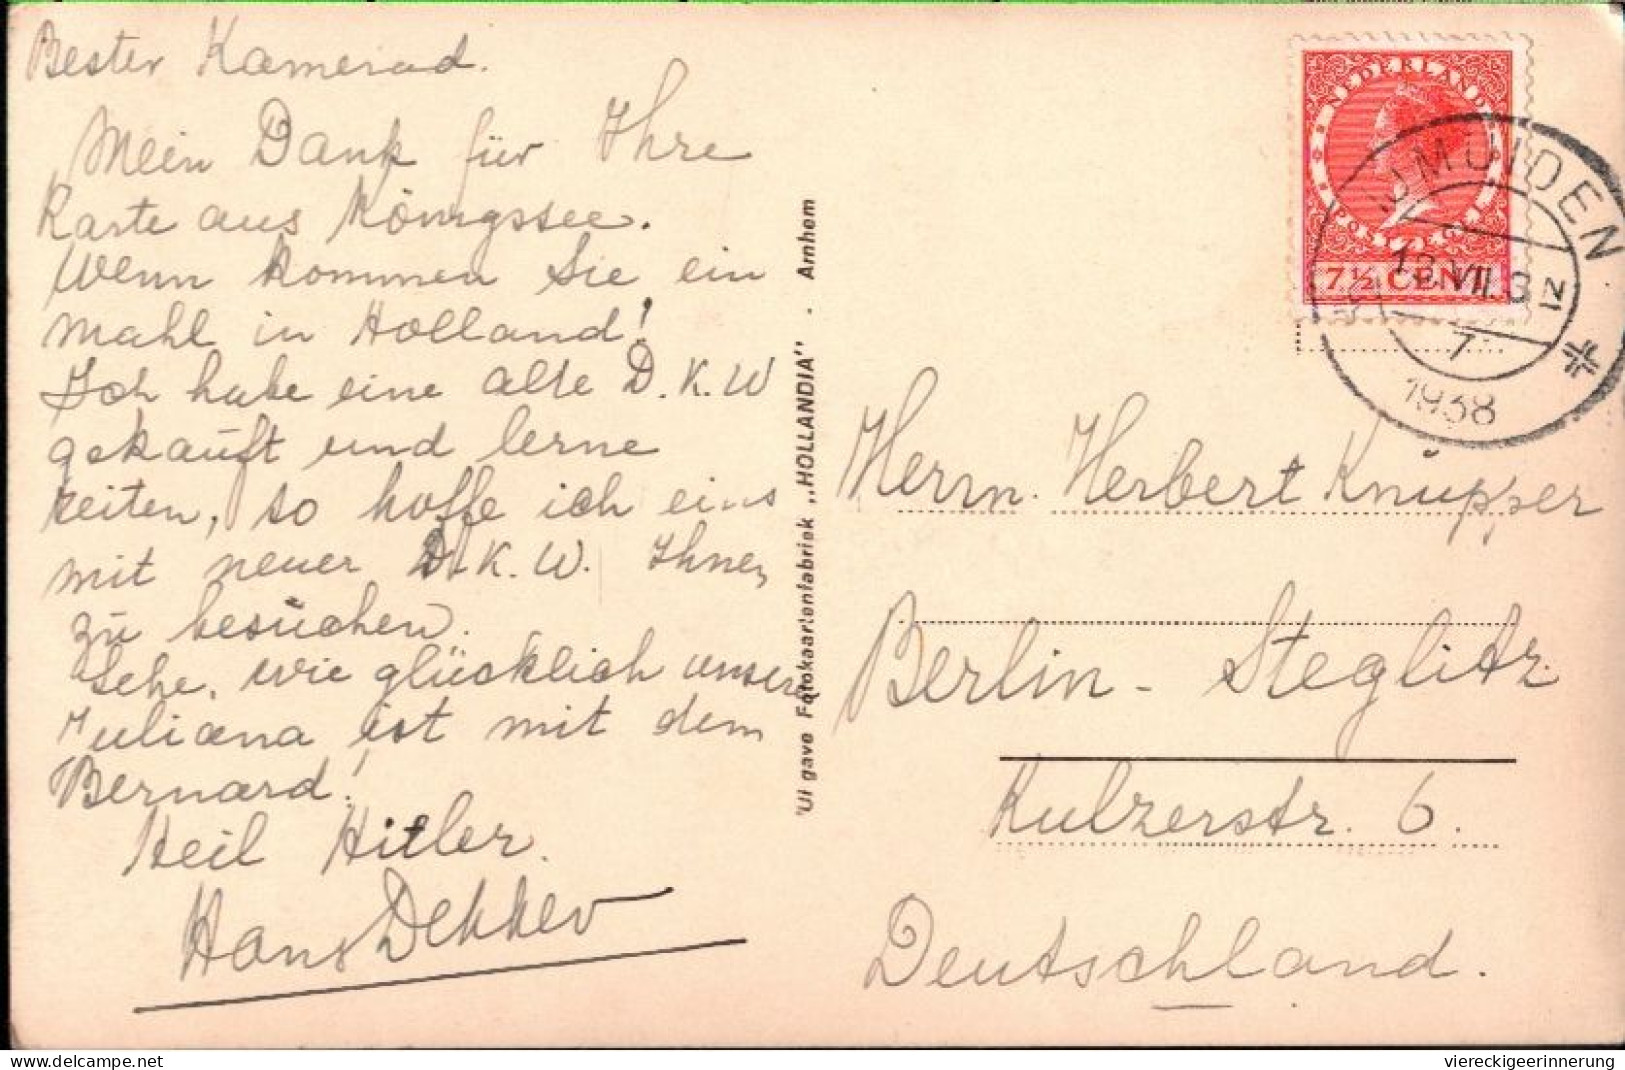 Bester Kamerad.
Mein Dank für Ihre
Karte aus Königssee.
Wenn kommen Sie ein
mahl in Holland!
Ich habe eine alte D.K.W
gekauft und lerne
reiten, so hoffe ich eins
mit neuer D.K.W. Ihnen
zu besuchen.
Sehe, wie glücklich unsere
Juliana ist mit dem
Bernard!
Heil Hitler.
Hans Dekker
'Ui gave Fotokaartenfabriek „HOLLANDIA” . Arnhem
NEDERLAND
POSTZEGEL
7½ CENT
IJMUIDEN
13.VII.3
7
1938
Herrn. Herbert Knüpper
Berlin - Steglitz.
Kulzerstr. 6.
Deutschland.
delcampe.net
viereckigeerinnerung